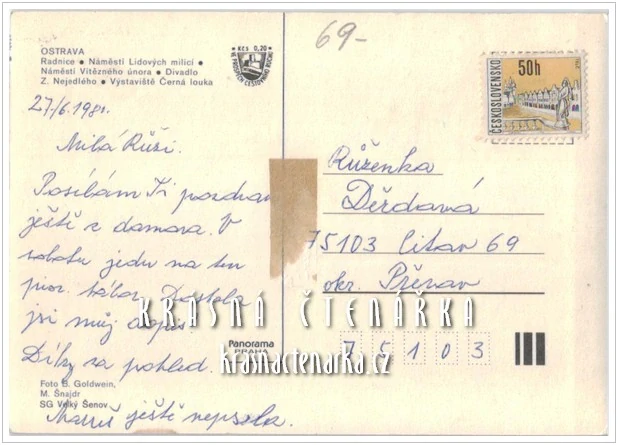 OSTRAVA
Radnice • Náměstí Lidových milicí •
Náměstí Vítězného února • Divadlo
Z. Nejedlého • Výstaviště Černá louka
27/6. 1981.
Milá Růži.
Posílám Ti pozdrav
ještě z domova. V
sobotu jedu na ten
pion. tábor. Dostala
jsi můj dopis?
Díky za pohled.
ještě nepsala.
Kčs 0,20
69-
ČESKOSLOVENSKO
50h
Růženka
Děrdavá
75103 Citov 69
okr. Přerov
KRÁSNÁ ČTENÁŘKA
krasnactenarka.cz
Panorama
PRAHA
75103
Foto B. Goldwein,
M. Šnajdr
SG Velký Šenov